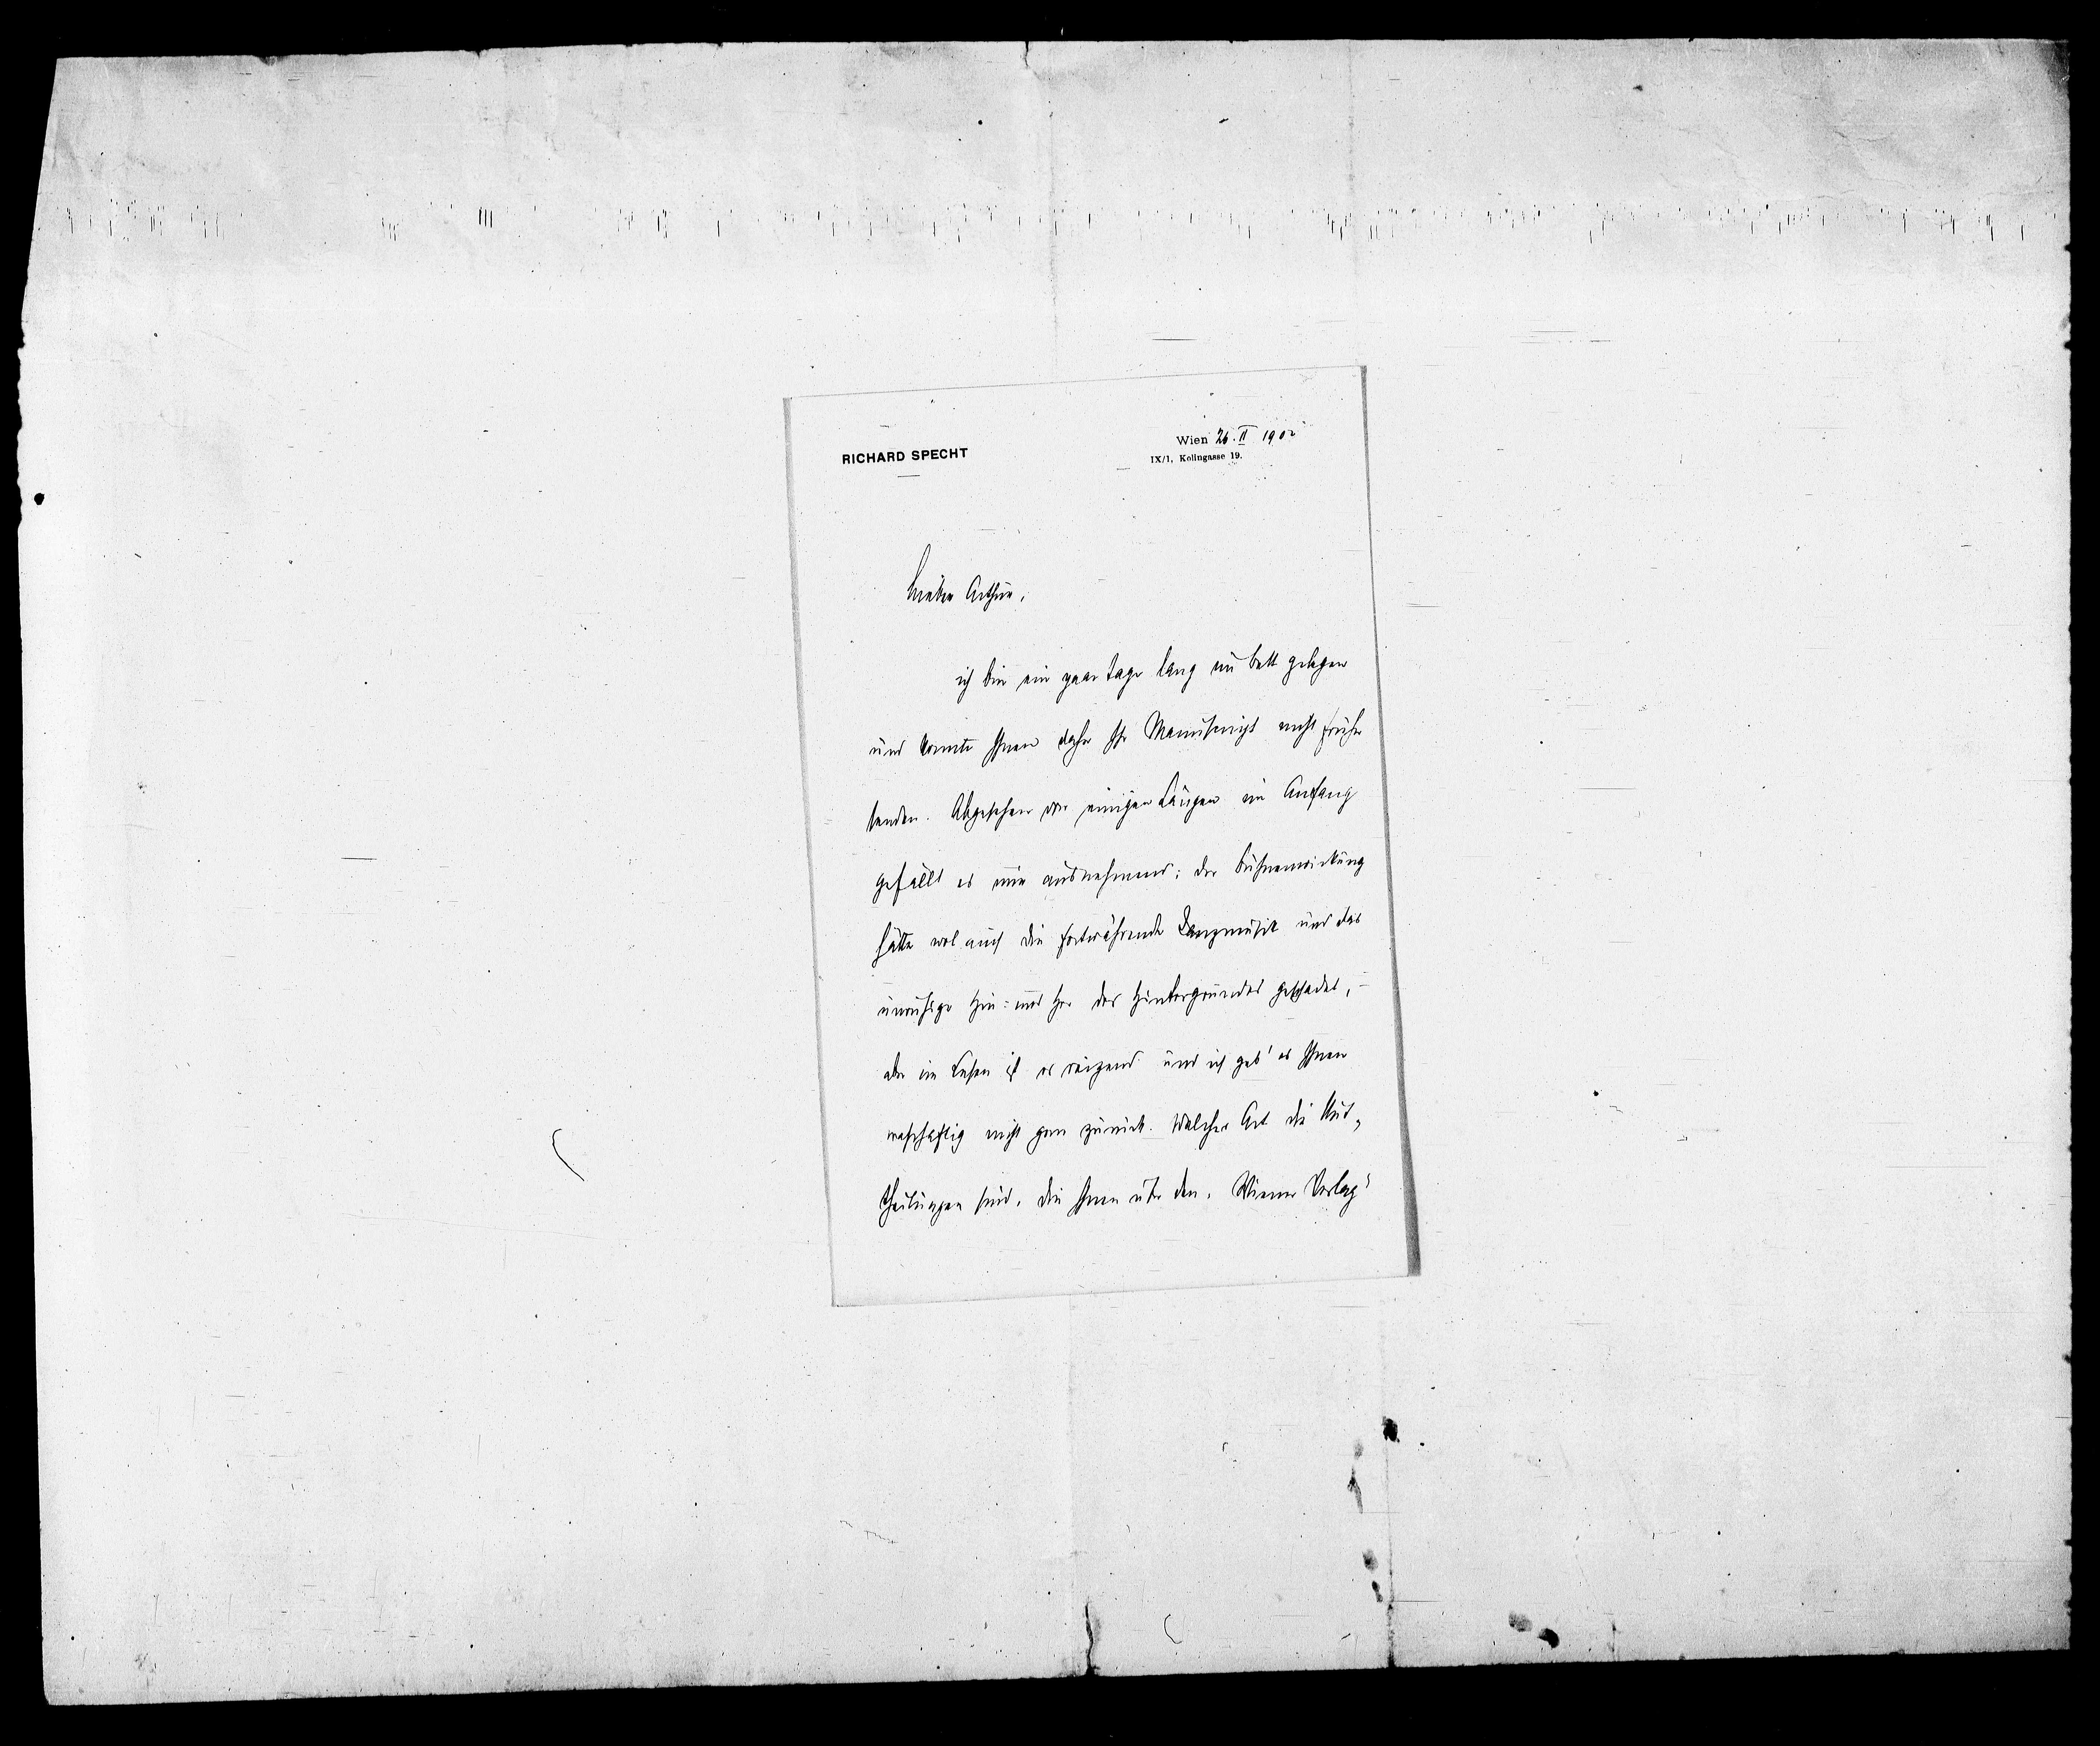 RICHARD SPECHT
Wien 26. II 1902
IX/1, Kolingasse 19.
Lieber Arthur,
ich bin ein paar Tage lang im Bett gelegen
und konnte Ihnen daher Ihr Manuscript nicht früher
senden. Abgesehen von einigen Längen im Anfang
gefällt es mir ausnehmend; der Bühnenwirkung
hätte wol auch die fortwährende Tanzmusik und das
unruhige Hin= und Her des Hintergrundes geschadet, –
aber im Lesen ist es reizend und ich geb' es Ihnen
wahrhaftig nicht gern zurück. Welcher Art die Mit„
theilungen sind, die Ihnen über den „Wiener Verlag"